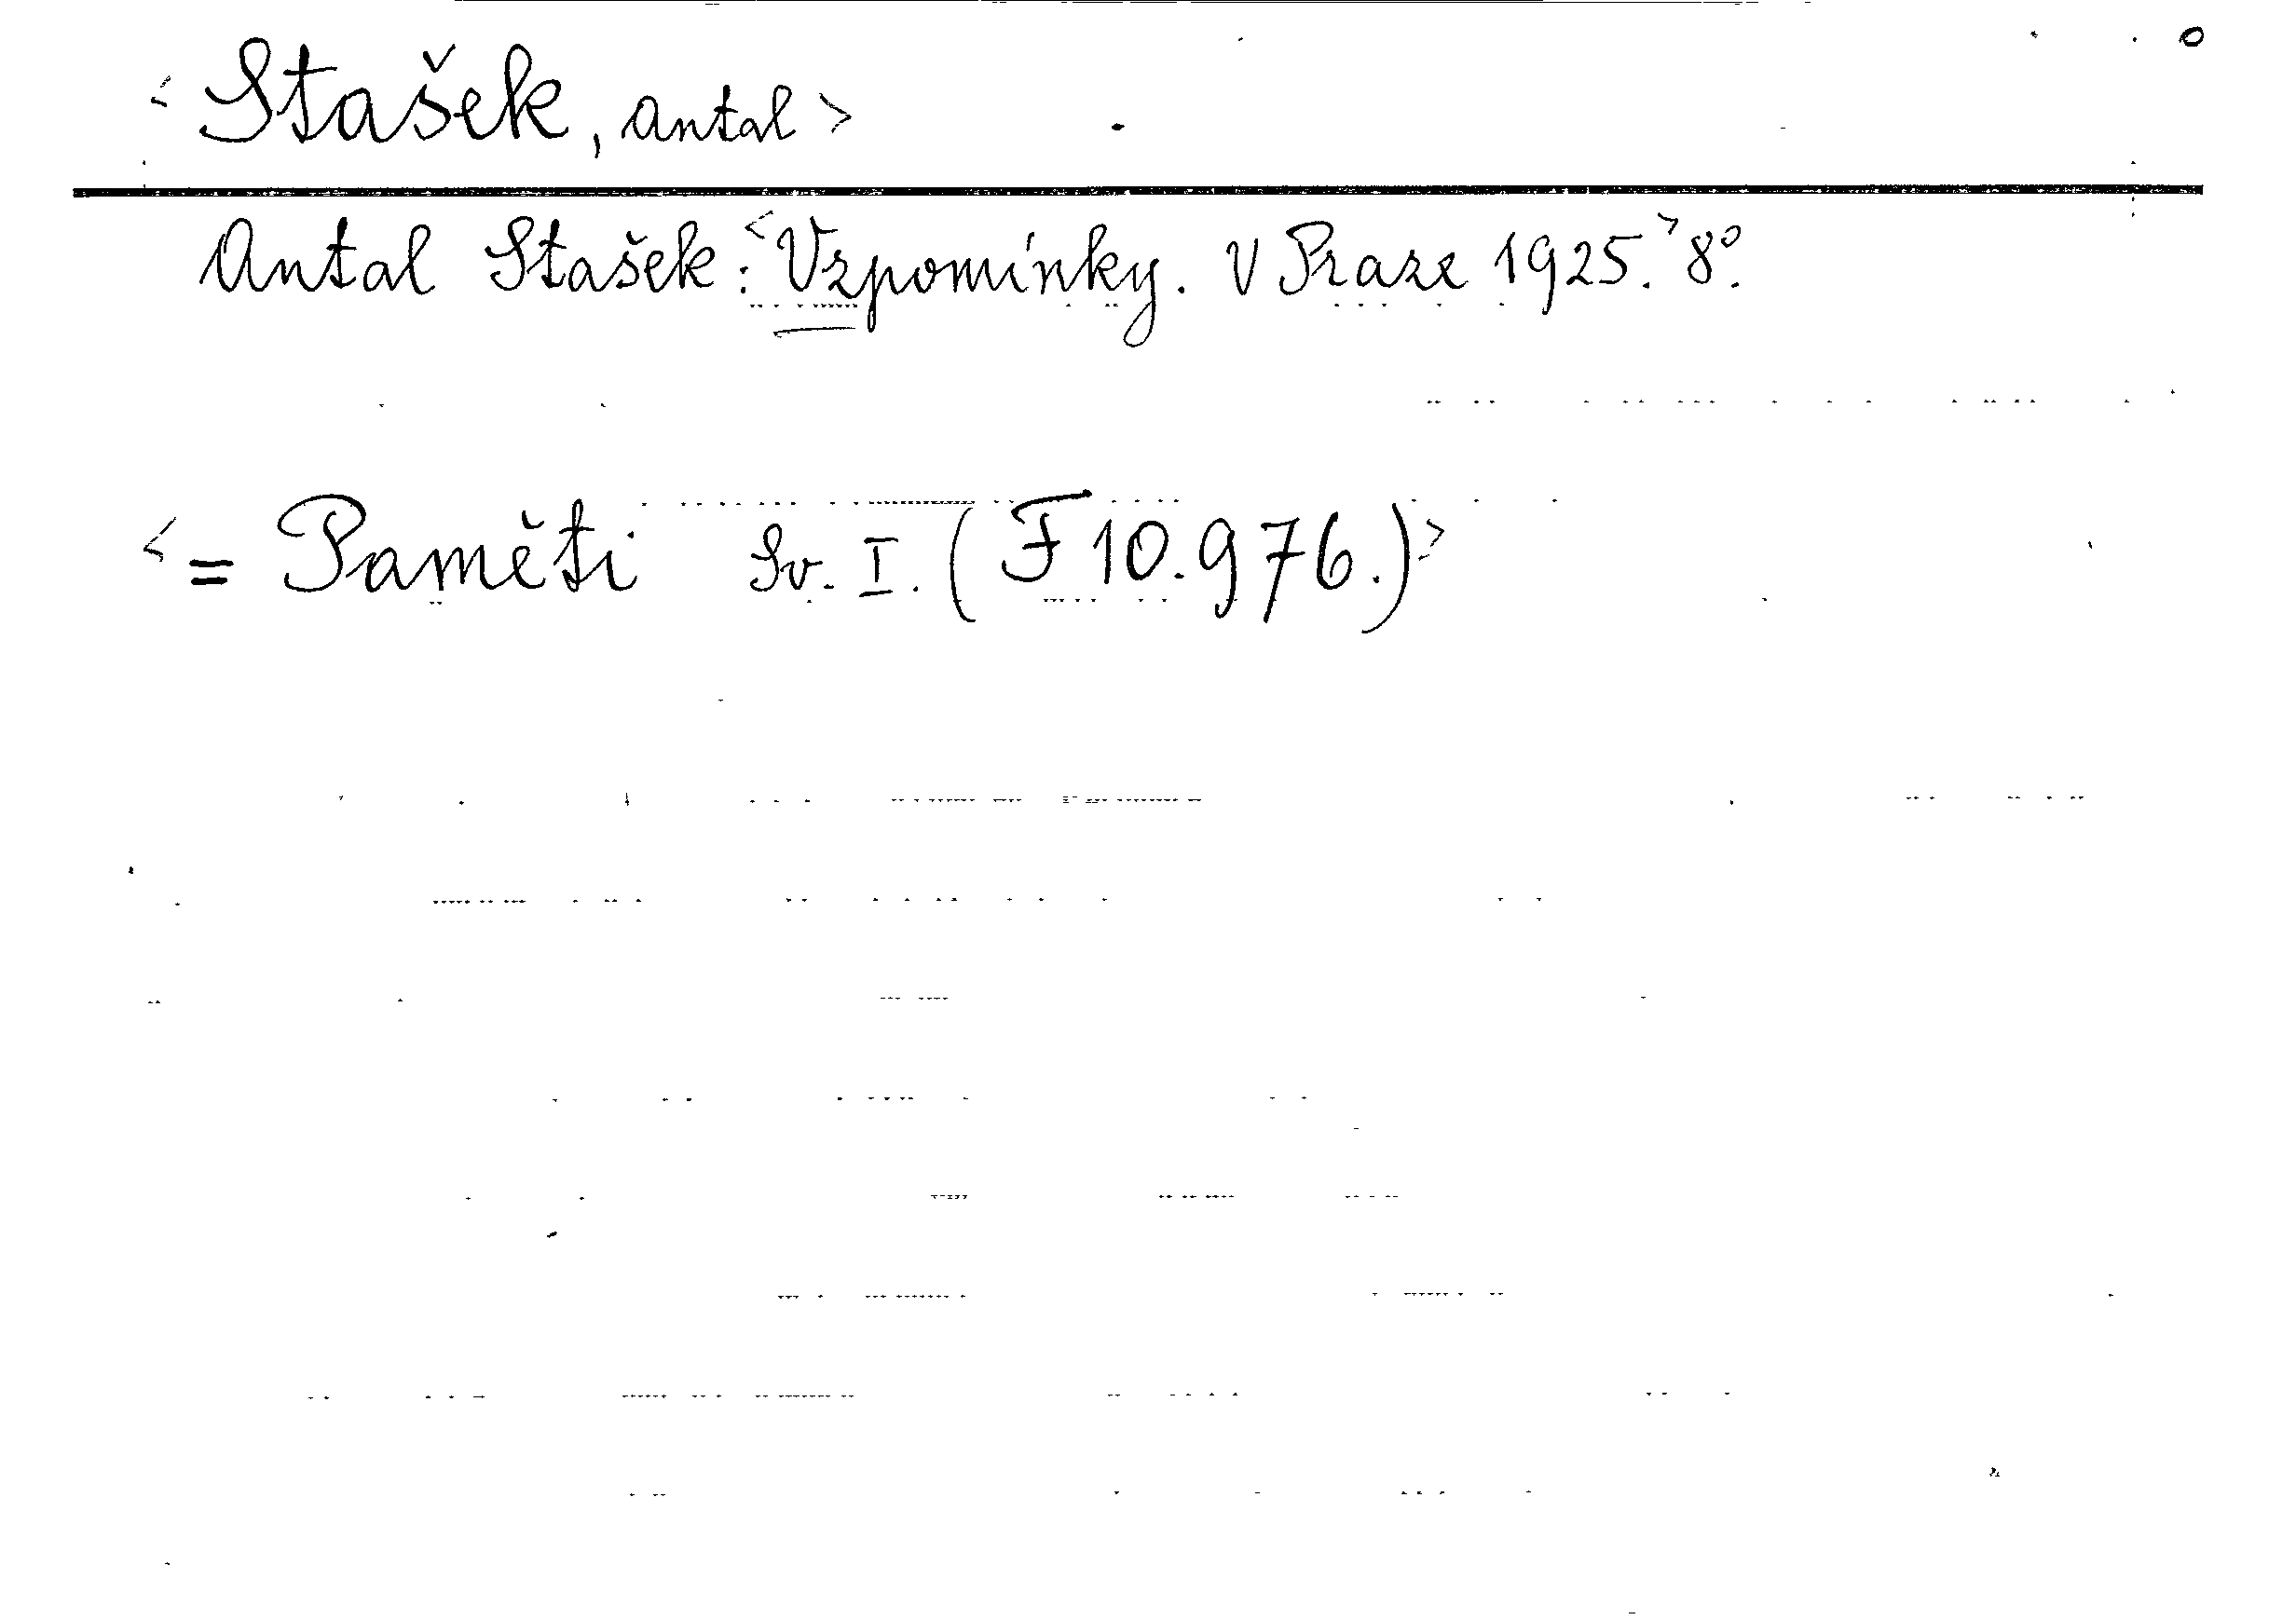 <Stašek, Antal>
Antal Stašek: <Vzpomínky. V Praze 1925.> 8°.
<= Paměti Sv. I. (F 10.976.)>